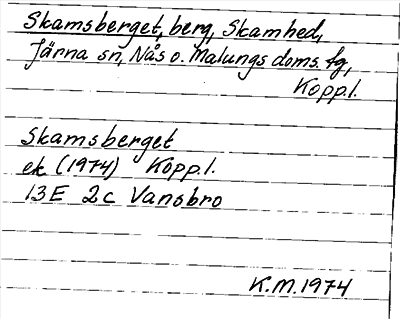 Skamsberget, berg, Skamhed,
Järna sn, Nås o. Malungs doms. fg,
Kopp.l.
Skamsberget
ek (1974) Kopp.l.
13E 2c Vansbro
K.M.1974